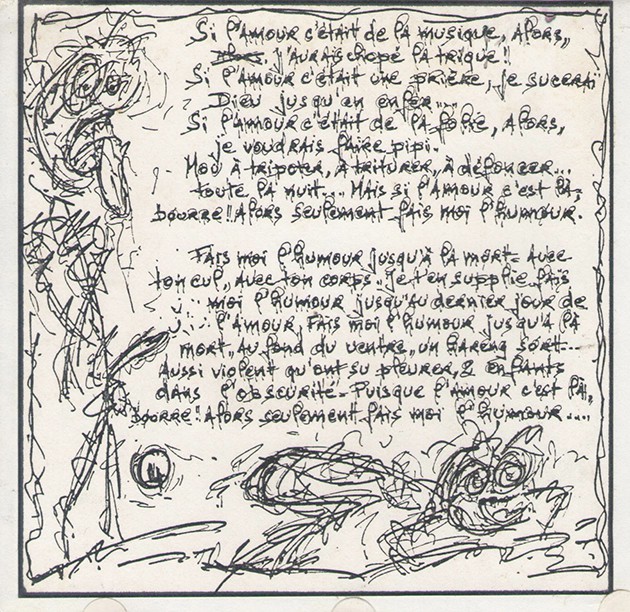 Si l'Amour c'était de la musique, Alors,,
j'aurais chopé la trique!!
Si l'amour c'était une prière, je sucerai
Dieu jusqu'en enfer....
Si l'amour c'était de la folie, Alors,
je voudrais faire pipi.
Mou à tripoter, à triturer, à défoncer...
toute la nuit... Mais si l'Amour c'est la,
bourre!! Alors seulement fais moi l'humour.
Fais moi l'humour jusqu'à la mort - Avec
ton cul, avec ton corps. je t'en supplie fais
moi l'humour jusqu'au dernier jour de
l'amour, Fais moi l'humour jusqu'à la
mort,, Au fond du ventre,, un hareng sort--
Aussi violent qu'ont su pleurer, 2 enfants
dans l'obscurité - Puisque l'amour c'est la,
bourre! Alors seulement fais moi l'humour....